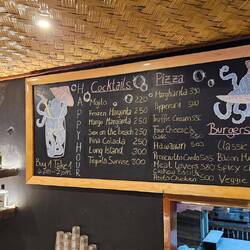 HAPPY HOUR
Buy 1 Take 1
Cocktails
Mojito 220
Frozen Margarita 250
Mango Margarita 250
Sex on the beach 250
Pina Colada 250
Long Island 300
Tequila Sunrise 300
Pizza
Margharita 350
Pepperoni
Truffle Cream
Four Cheeses
Hawaiian
Prosciutto Crudo
Meat Lovers 580
Pesto Chicken
Burgers
Classic
Bacon
Spicy
Veggie